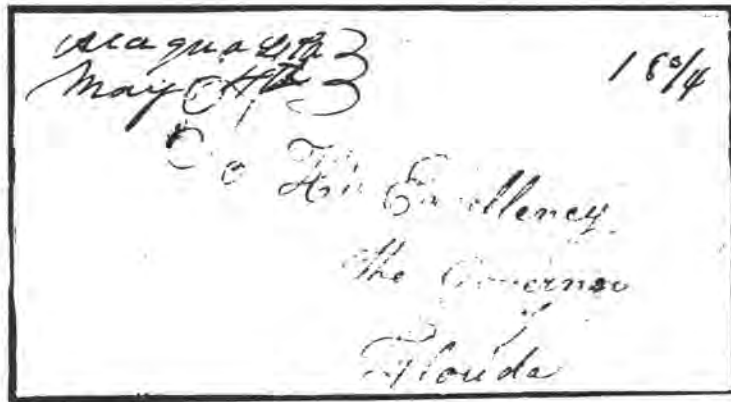 Alaqua
May 4th 18 3/4
To His Excellency
the Governor
of
Florida